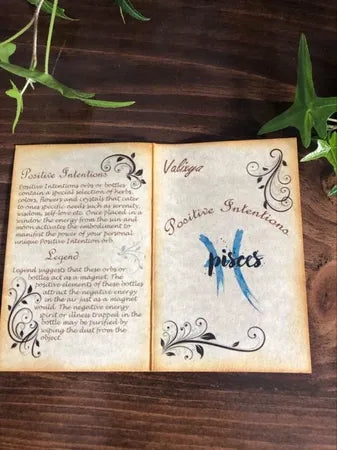 Positive Intentions
Positive Intentions orbs or bottles
contain a special selection of herbs,
colors, flowers and crystals that cater
to ones specific needs such as serenity,
wisdom, self love etc. Once placed in a
window the energy from the sun and
moon activates the embodiment to
manifest the power of your personal
unique Positive Intention orb.
Legend
Legend suggests that these orbs or
bottles act as a magnet. The
positive elements of these bottles
attract the negative energy
in the air just as a magnet
would. The negative energy
spirit or illness trapped in the
bottle may be purified by
wiping the dust from the
object.
Valixya
Positive Intentions
pisces